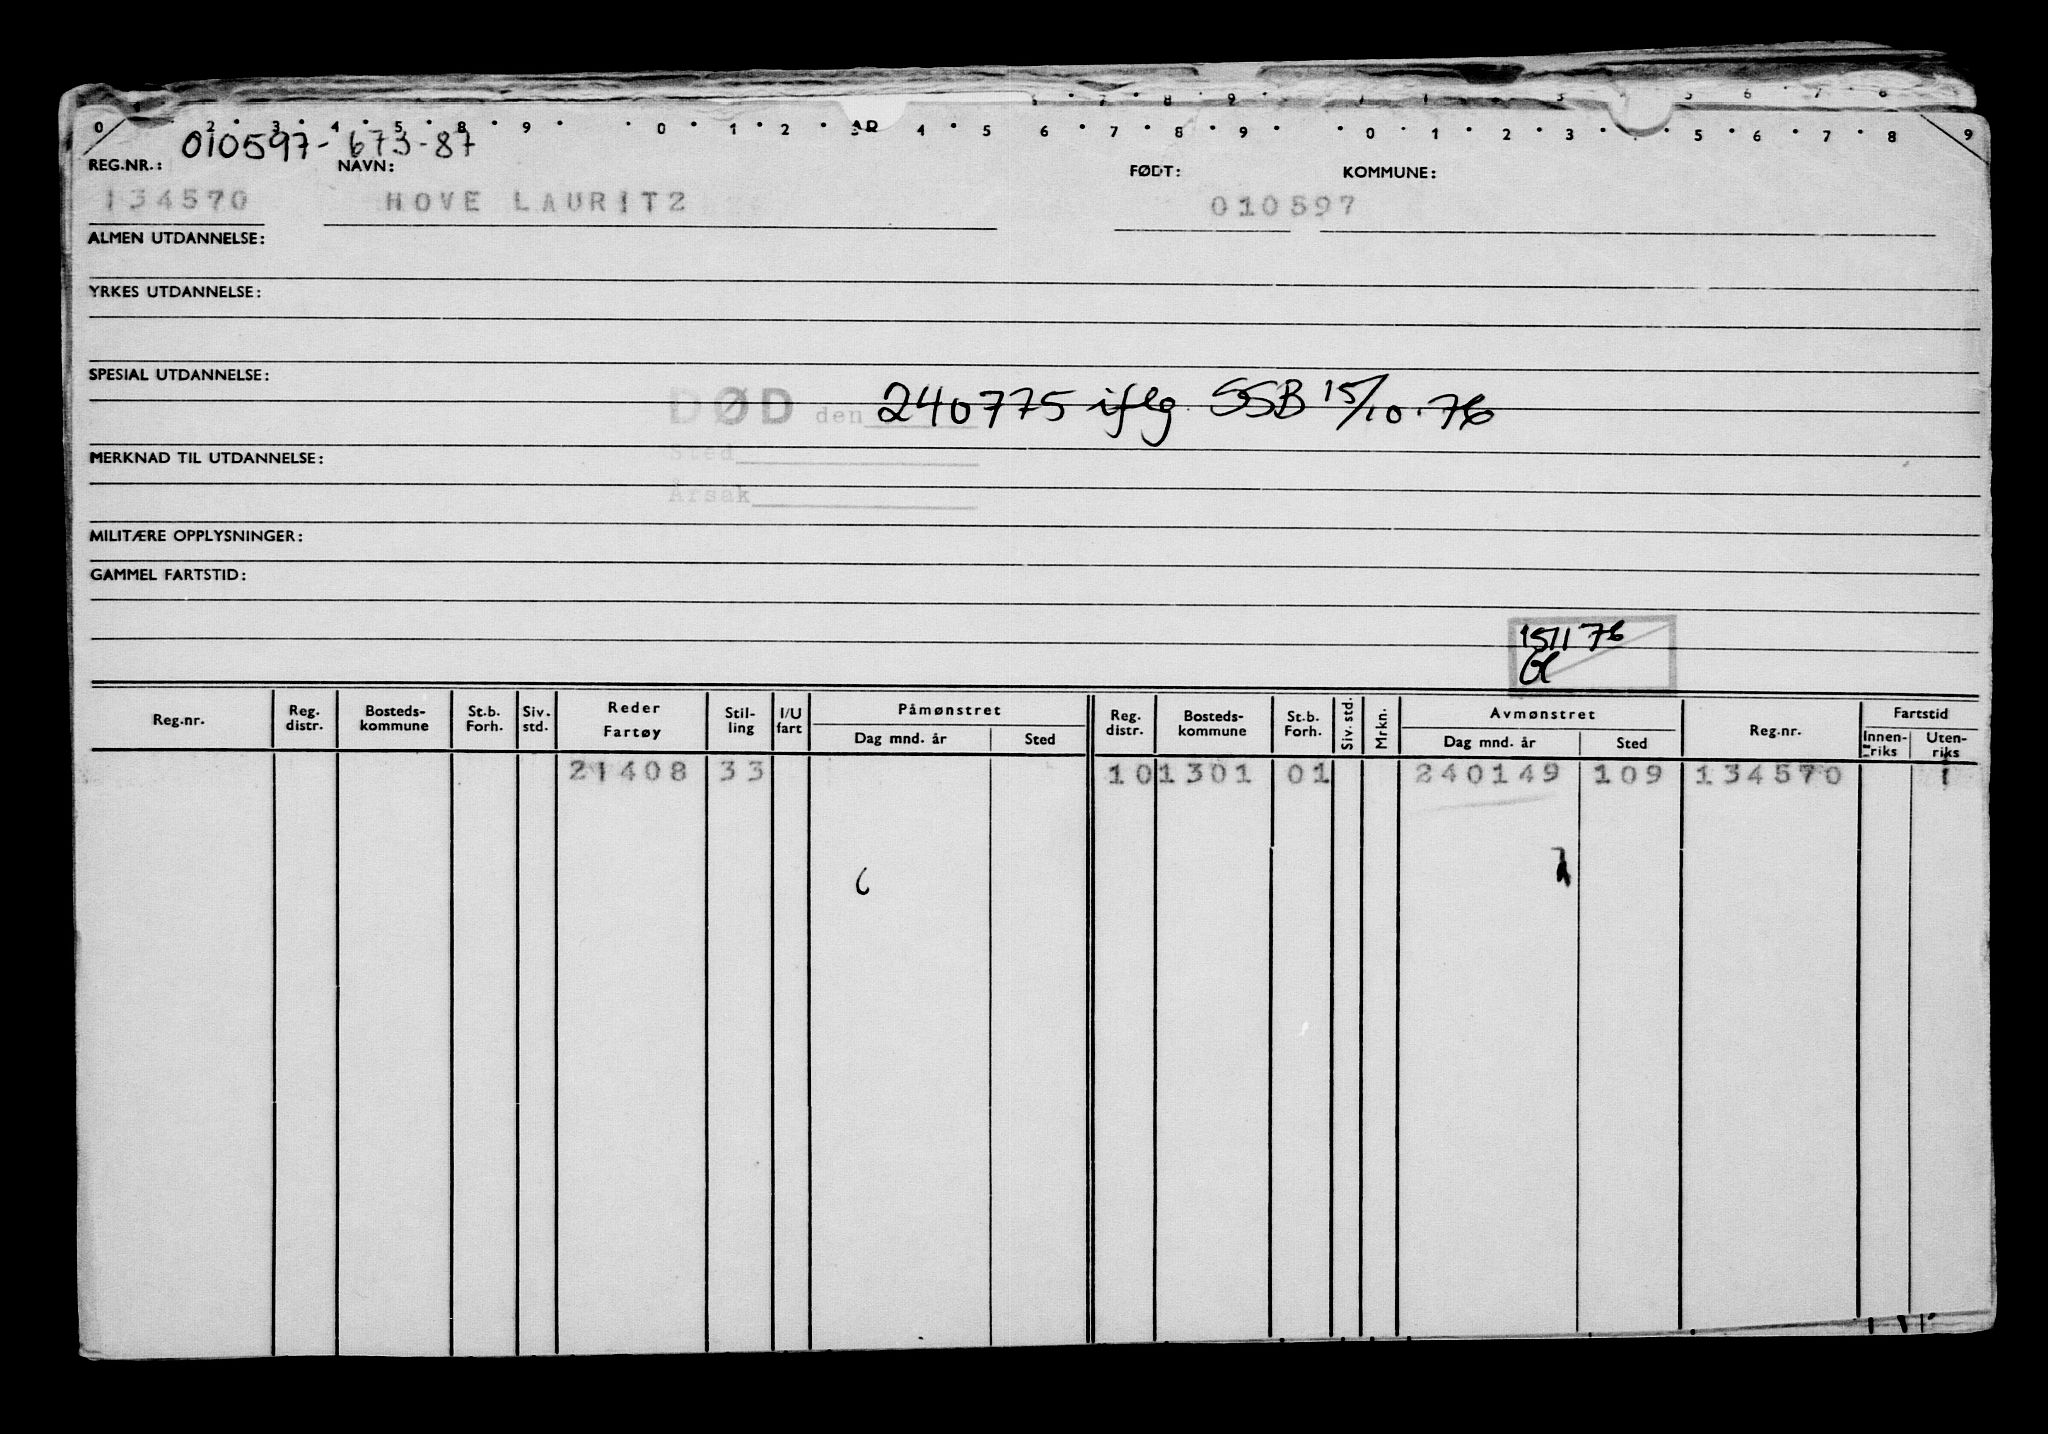 010597-673-87
REG.NR.: NAVN: FØDT: KOMMUNE:
134570 HOVE LAURITZ 010597
ALMEN UTDANNELSE:
YRKES UTDANNELSE:
SPESIAL UTDANNELSE:
DØD den 240775 iflg SSB 15/10.76
Sted
MERKNAD TIL UTDANNELSE:
Årsak
MILITÆRE OPPLYSNINGER:
GAMMEL FARTSTID:
15/11 76
Reg.nr. Reg. distr. Bosteds-kommune St.b. Forh. Siv. std. Reder Fartøy Stil-ling I/U fart Påmønstret Dag mnd. år Sted Reg. distr. Bosteds-kommune St.b. Forh. Siv. std. Mrkn. Avmønstret Dag mnd. år Sted Reg.nr. Fartstid Innen-riks Uten-riks
21408 33 10 1301 01 240149 109 134570 1